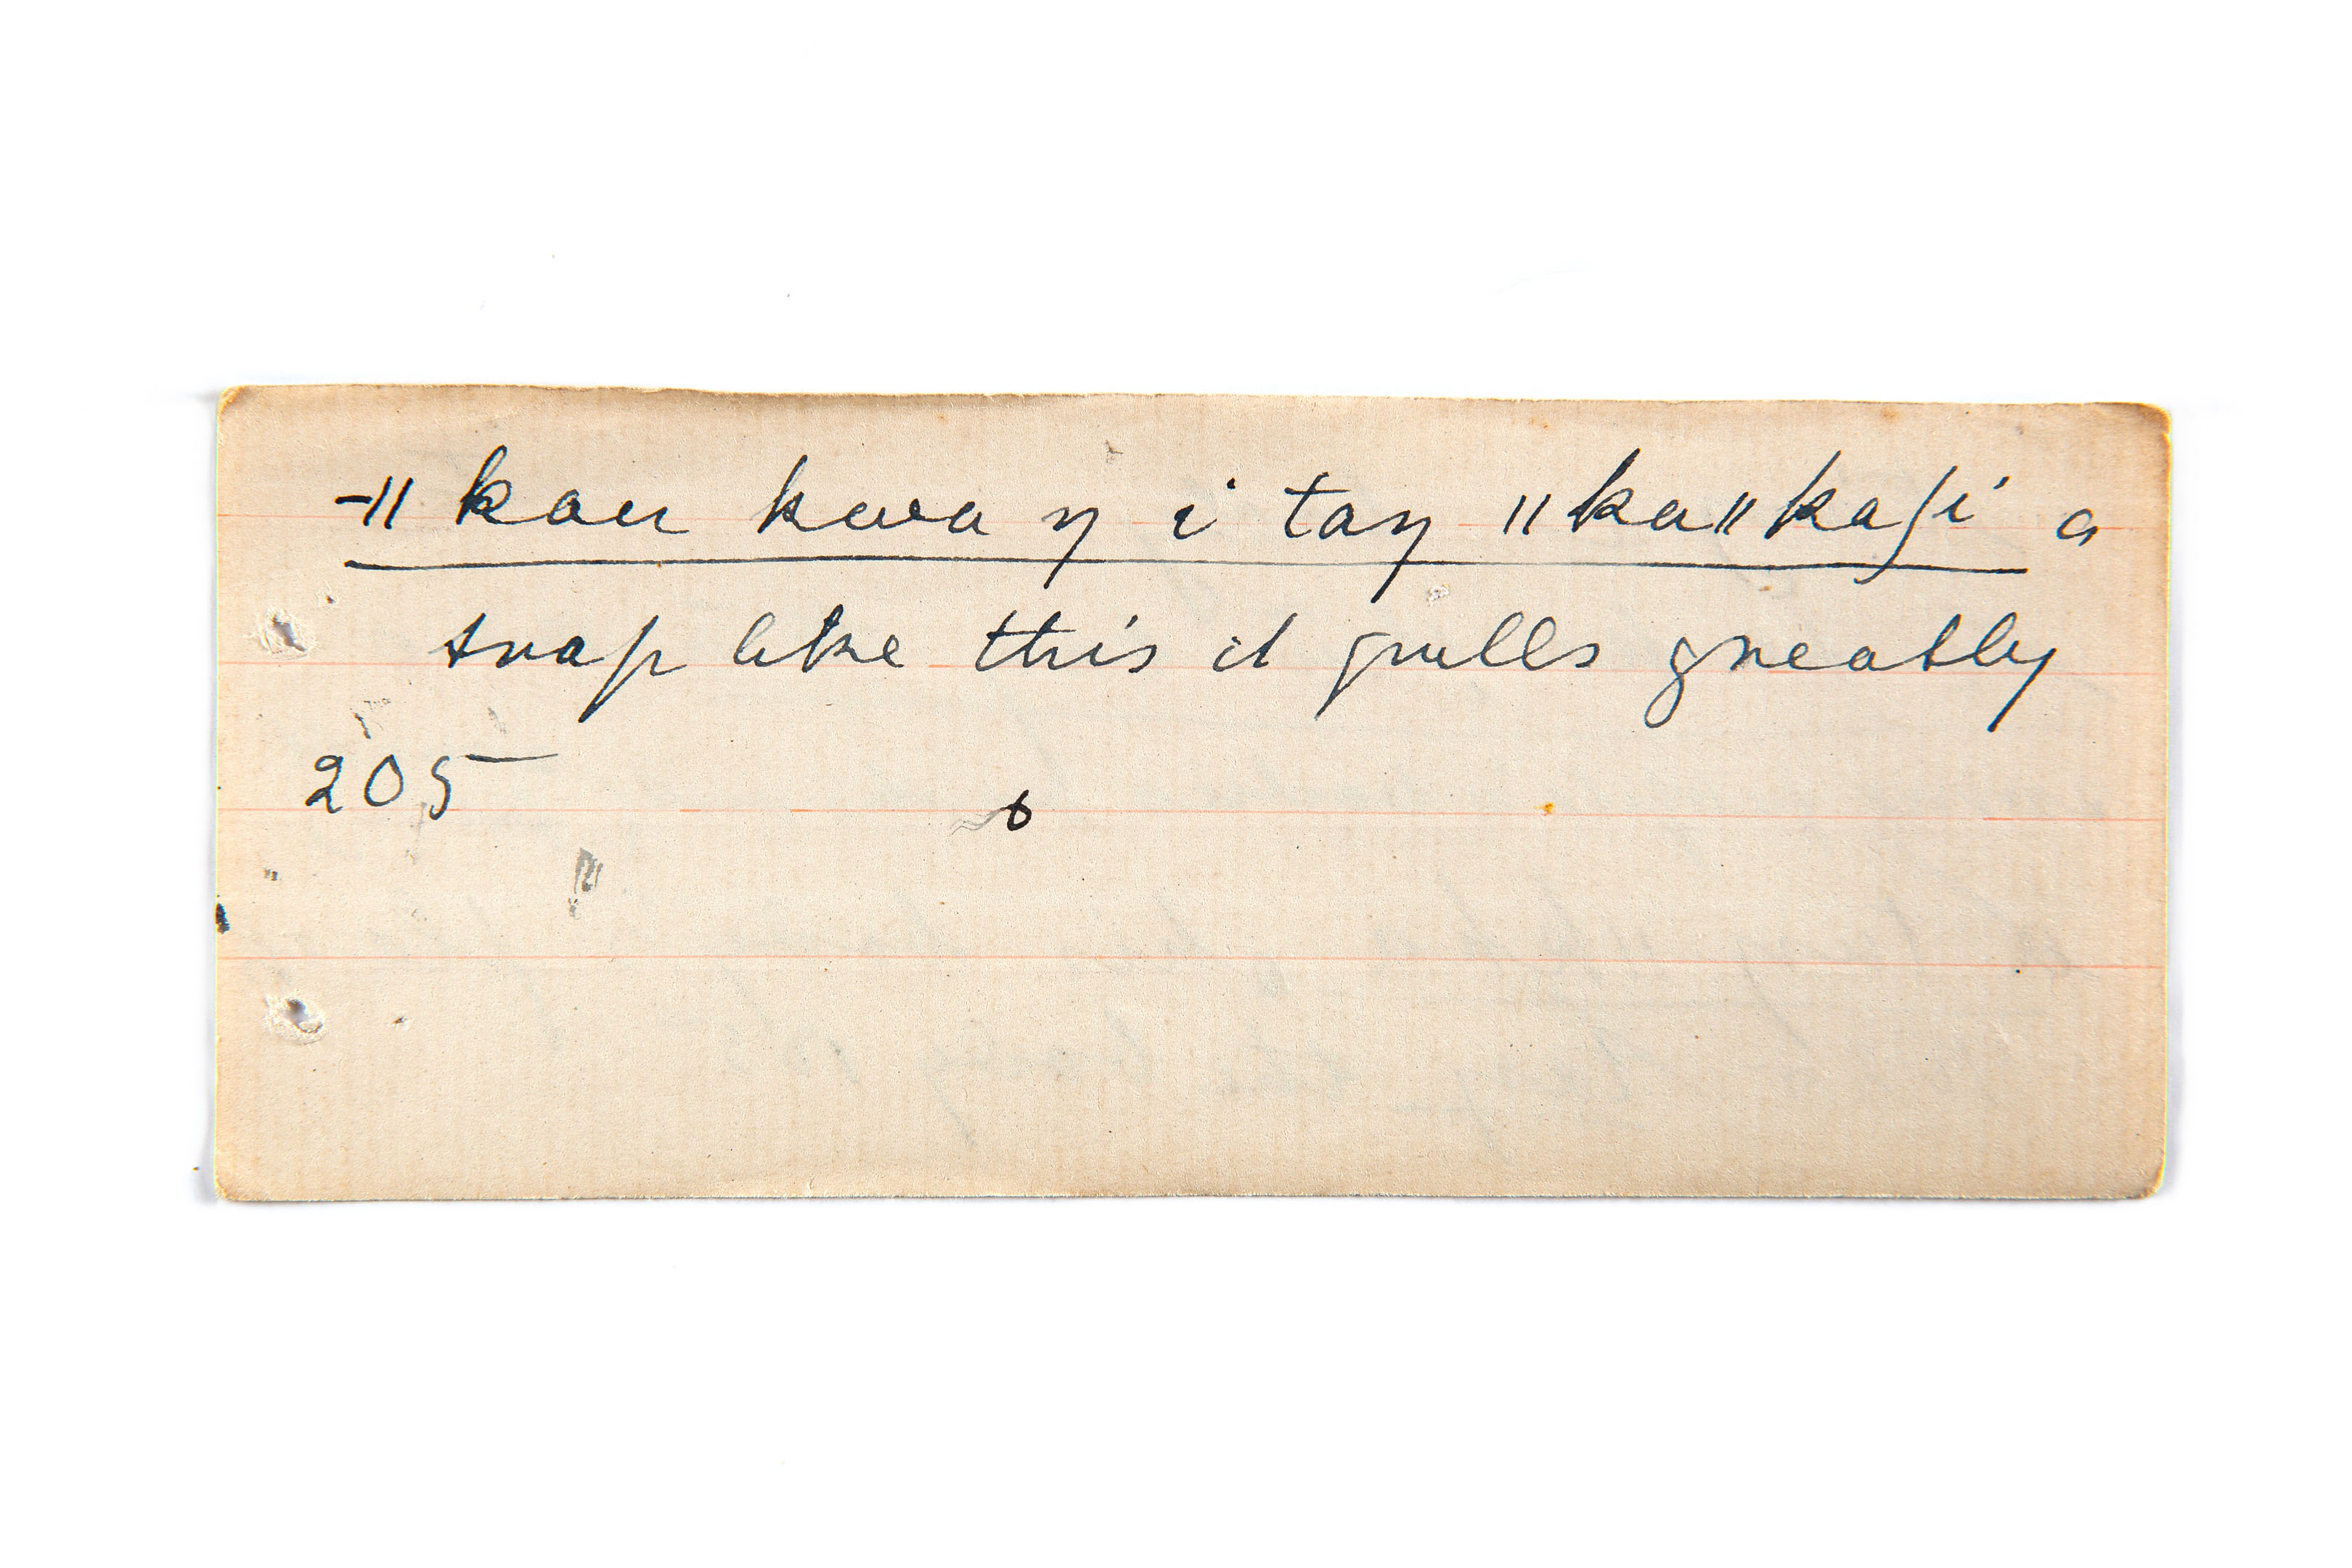 -ǁ kau kwa ŋ i taŋ ǁkaǁkaʃi a
snap like this it pulls greatly
205